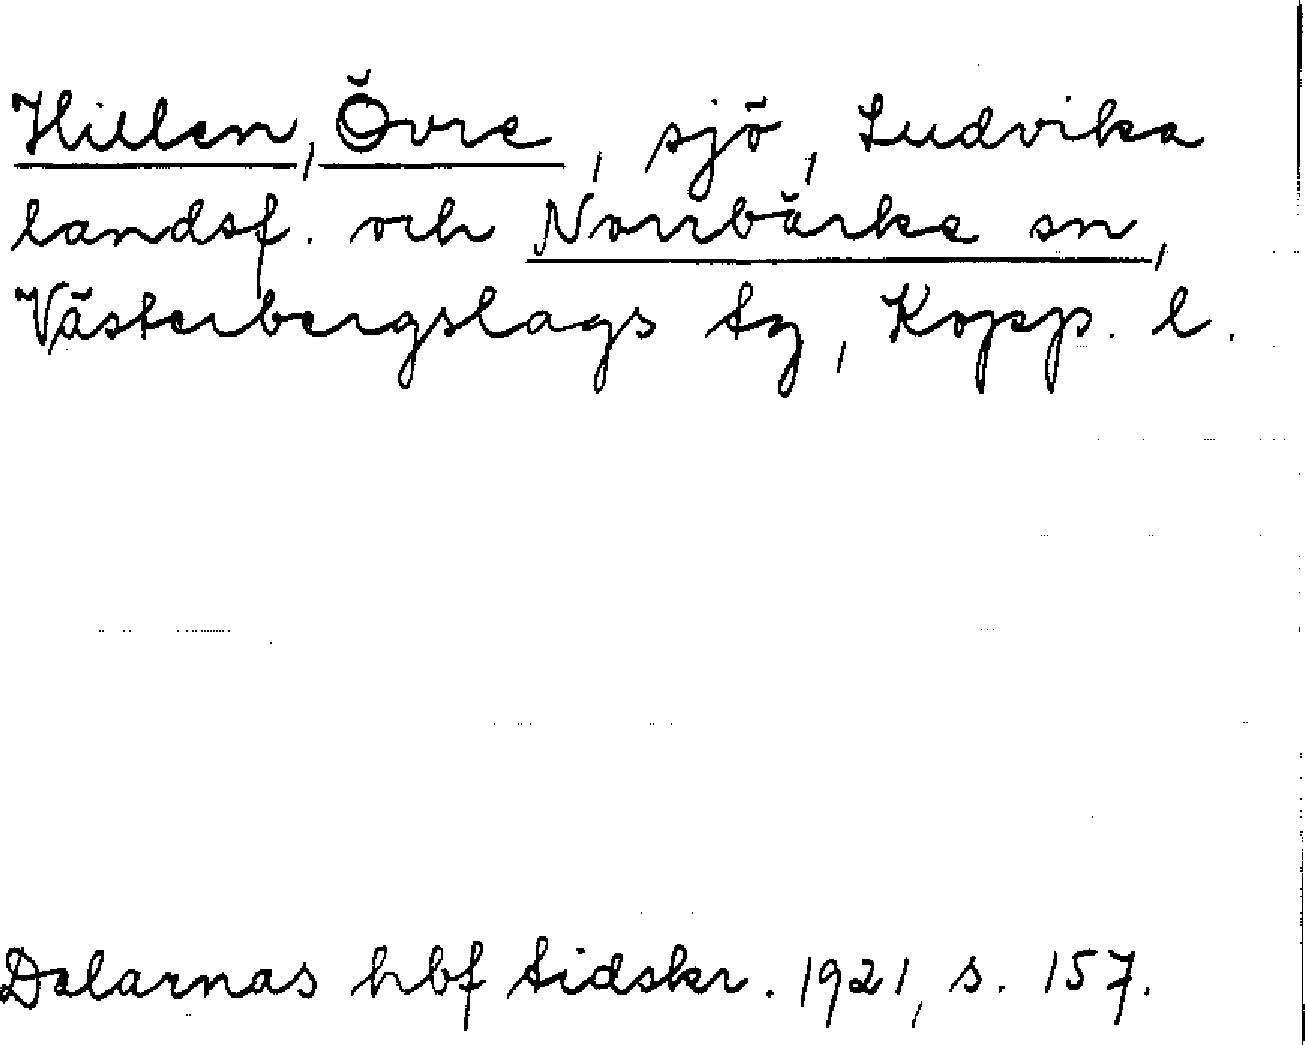 Hillen, Övre, sjö, Ludvika
landsf. och Norrbärke sn,
Västerbergslags tg, Kopp. l.
Dalarnas hbf tidskr. 1921, s. 157.